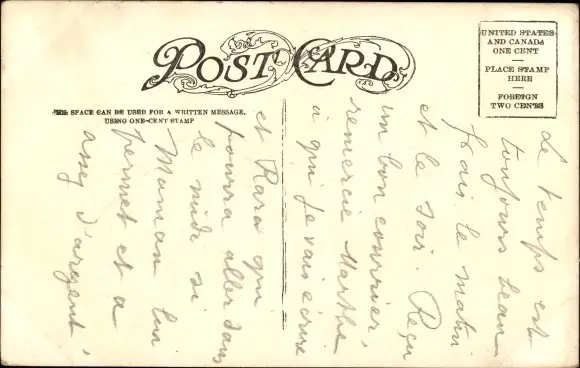 POST CARD
THIS SPACE CAN BE USED FOR A WRITTEN MESSAGE,
USING ONE-CENT STAMP
UNITED STATES
AND CANADA
ONE CENT
PLACE STAMP
HERE
FOREIGN
TWO CENTS
Le temps est
toujours beau
frais le matin
et le soir. Reçu
un bon courrier,
remercie Marthe
à qui je vais écrire
et Rara qui
pourra aller dans
le midi si
Maman lui
permet et a
assez d'argent.